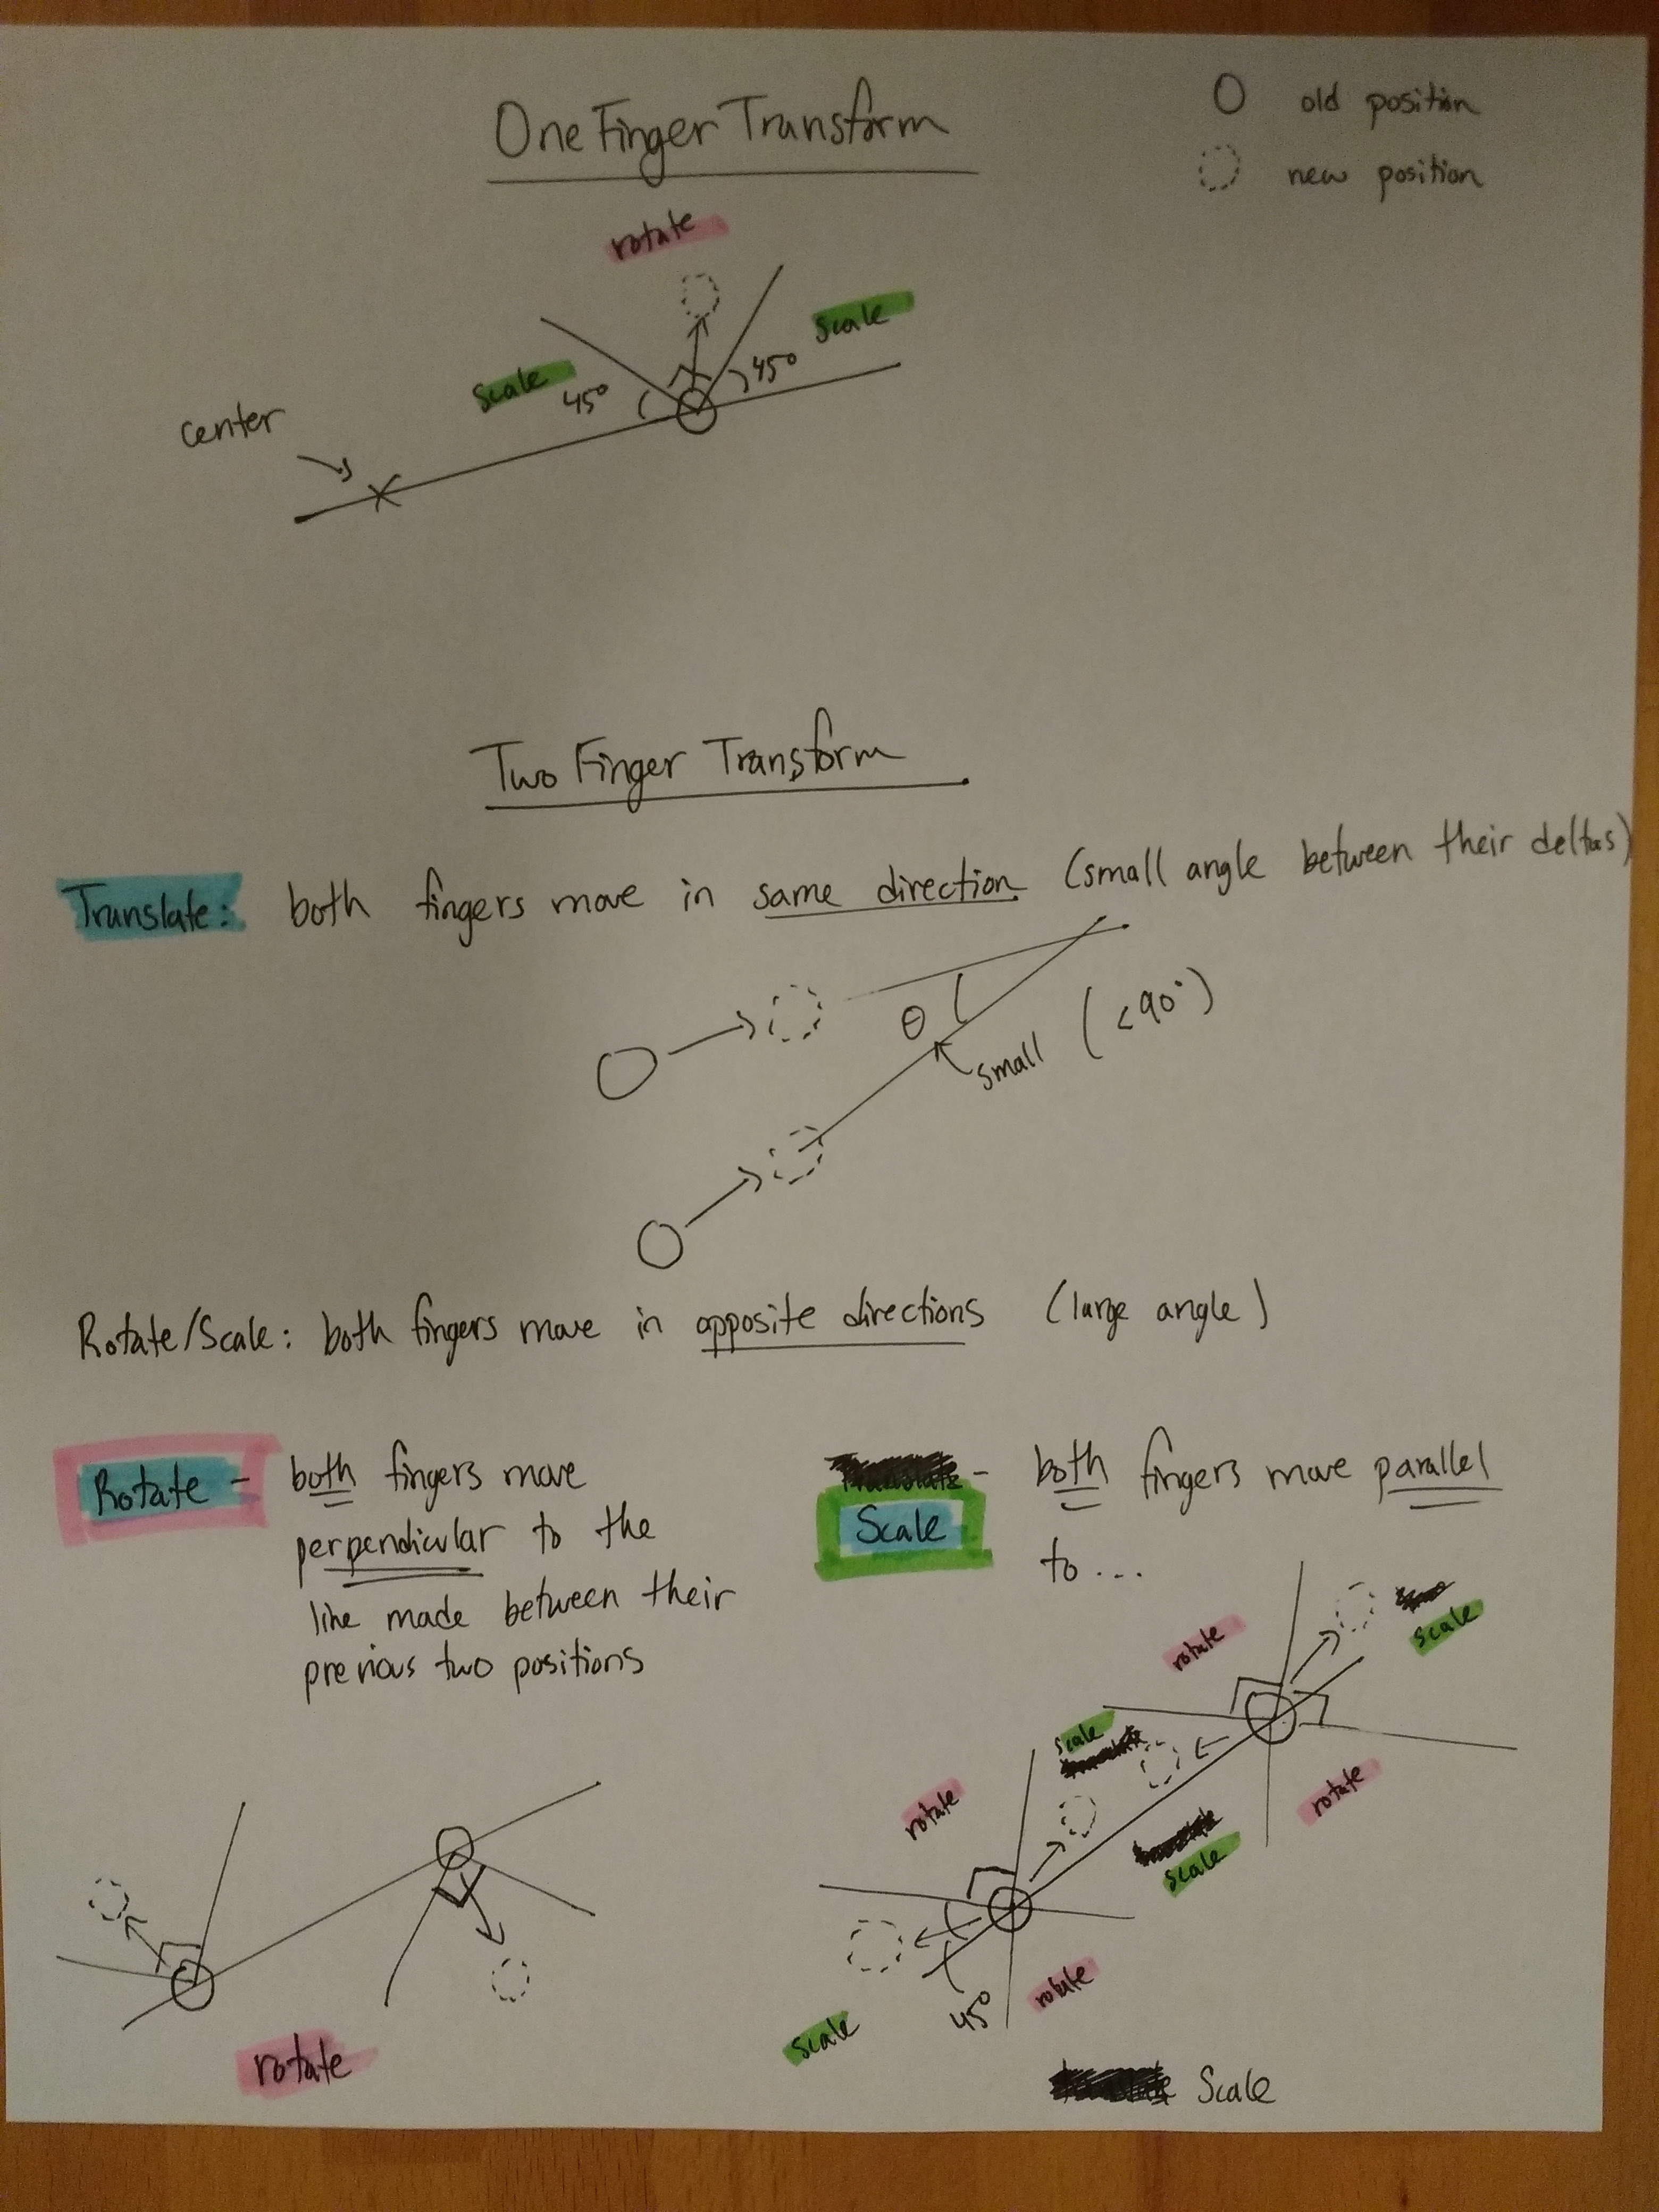 One Finger Transform
old position
new position
rotate
scale
45°
45°
scale
center
Two Finger Transform
Translate: both fingers move in same direction (small angle between their deltas)
θ
small (<90°)
Rotate/Scale: both fingers move in opposite directions (large angle)
Rotate - both fingers move
perpendicular to the
line made between their
previous two positions
rotate
- both fingers move parallel
Scale
to...
rotate
scale
scale
rotate
rotate
scale
45°
rotate
scale
Scale